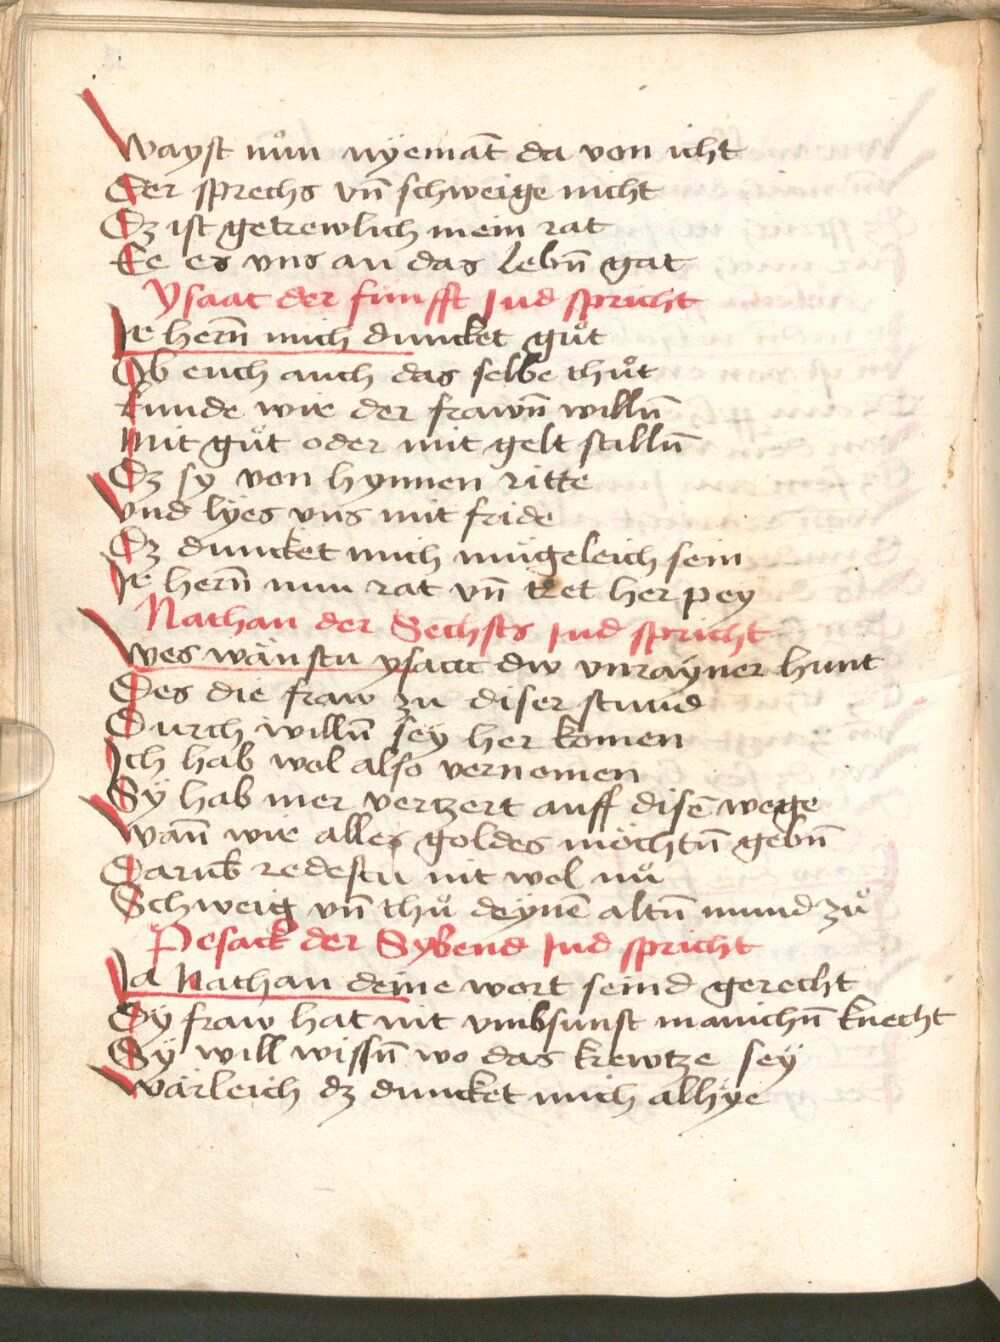 Wayst nůn nÿemāt da von icht
Der sprechs vn̄ schweige nicht
Dz ist getrewlich mein rat
Ee es vns an das lebn̄ gat
Ysaac der fünfft Jud spricht
Ir hern̄ mich duncket gůt
Ob euch auch das selbe thůt
Kunde wir der frawn̄ willn̄
Mit gůt oder mit gelt stilln̄
Dz sy von hynnen ritte
Vnd lÿes vns mit fride
Dz duncket mich mügeleich sein
Ir hern̄ nun rat vn̄ tret her pey
Nathan der Sechsts Jud spricht
Wes wänstu ysaac dw vnrayner hunt
Des die fraw zu diser stund
Durch willn̄ sey her komen
Ich hab wol also vernomen
Sÿ hab mer vertzert auff disē wege
Wan̄ wir alles goldes möchtn̄ gebn̄
Darub̄ redestu nit wol nů
Schweig vn̄ thů deynē altn̄ mund zů
Pesack der Sybend Jud spricht
Ja Nathan deine wort seind gerecht
Dy fraw hat nit vmbsunst manichn̄ knecht
Sÿ will wissn̄ wo das krewtze sey
Wärleich dz duncket mich alhÿe